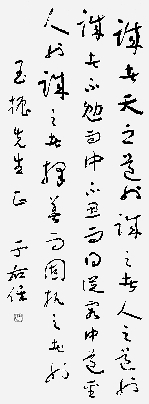 誠者天之道也誠之者人之道也
誠者不勉而中不思而得從容中道聖
人也誠之者擇善而固執之者也
玉振先生正 于右任